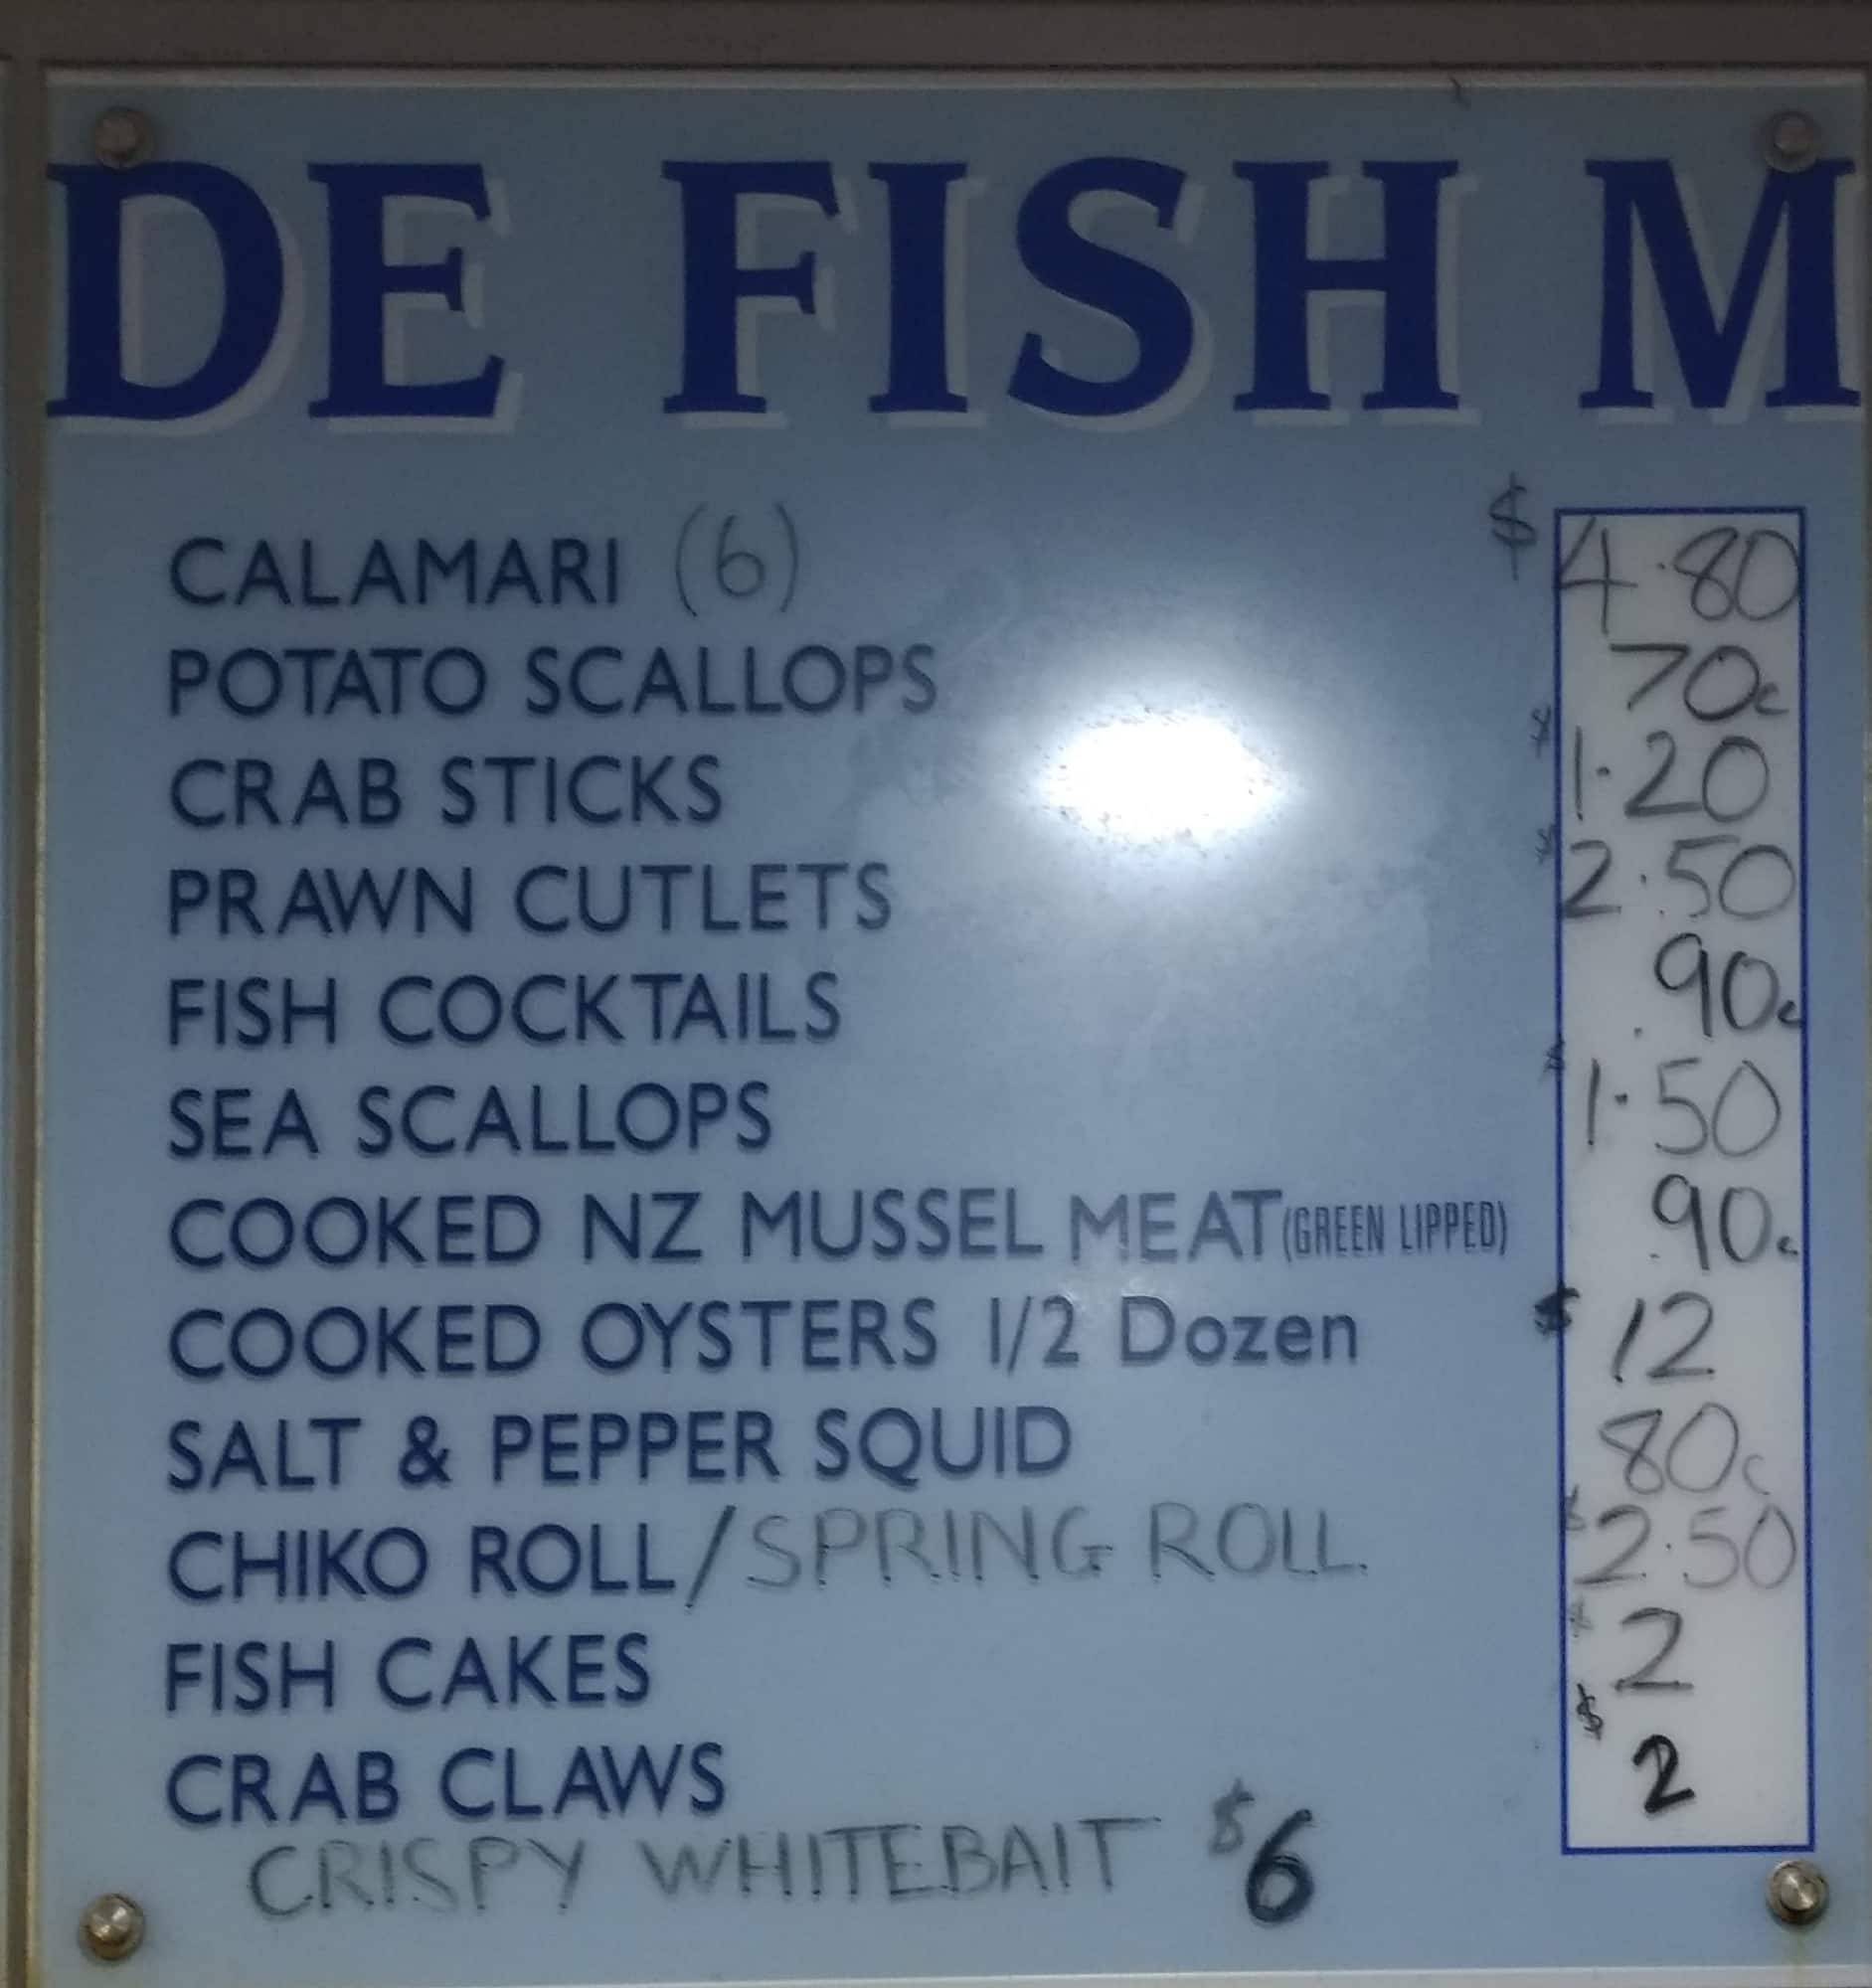 DE FISH M
CALAMARI (6) $4.80
POTATO SCALLOPS 70c
CRAB STICKS $1.20
PRAWN CUTLETS $2.50
FISH COCKTAILS .90c
SEA SCALLOPS $1.50
COOKED NZ MUSSEL MEAT (GREEN LIPPED) .90c
COOKED OYSTERS 1/2 Dozen $12
SALT & PEPPER SQUID 80c
CHIKO ROLL/SPRING ROLL $2.50
FISH CAKES $2
CRAB CLAWS $2
CRISPY WHITEBAIT $6